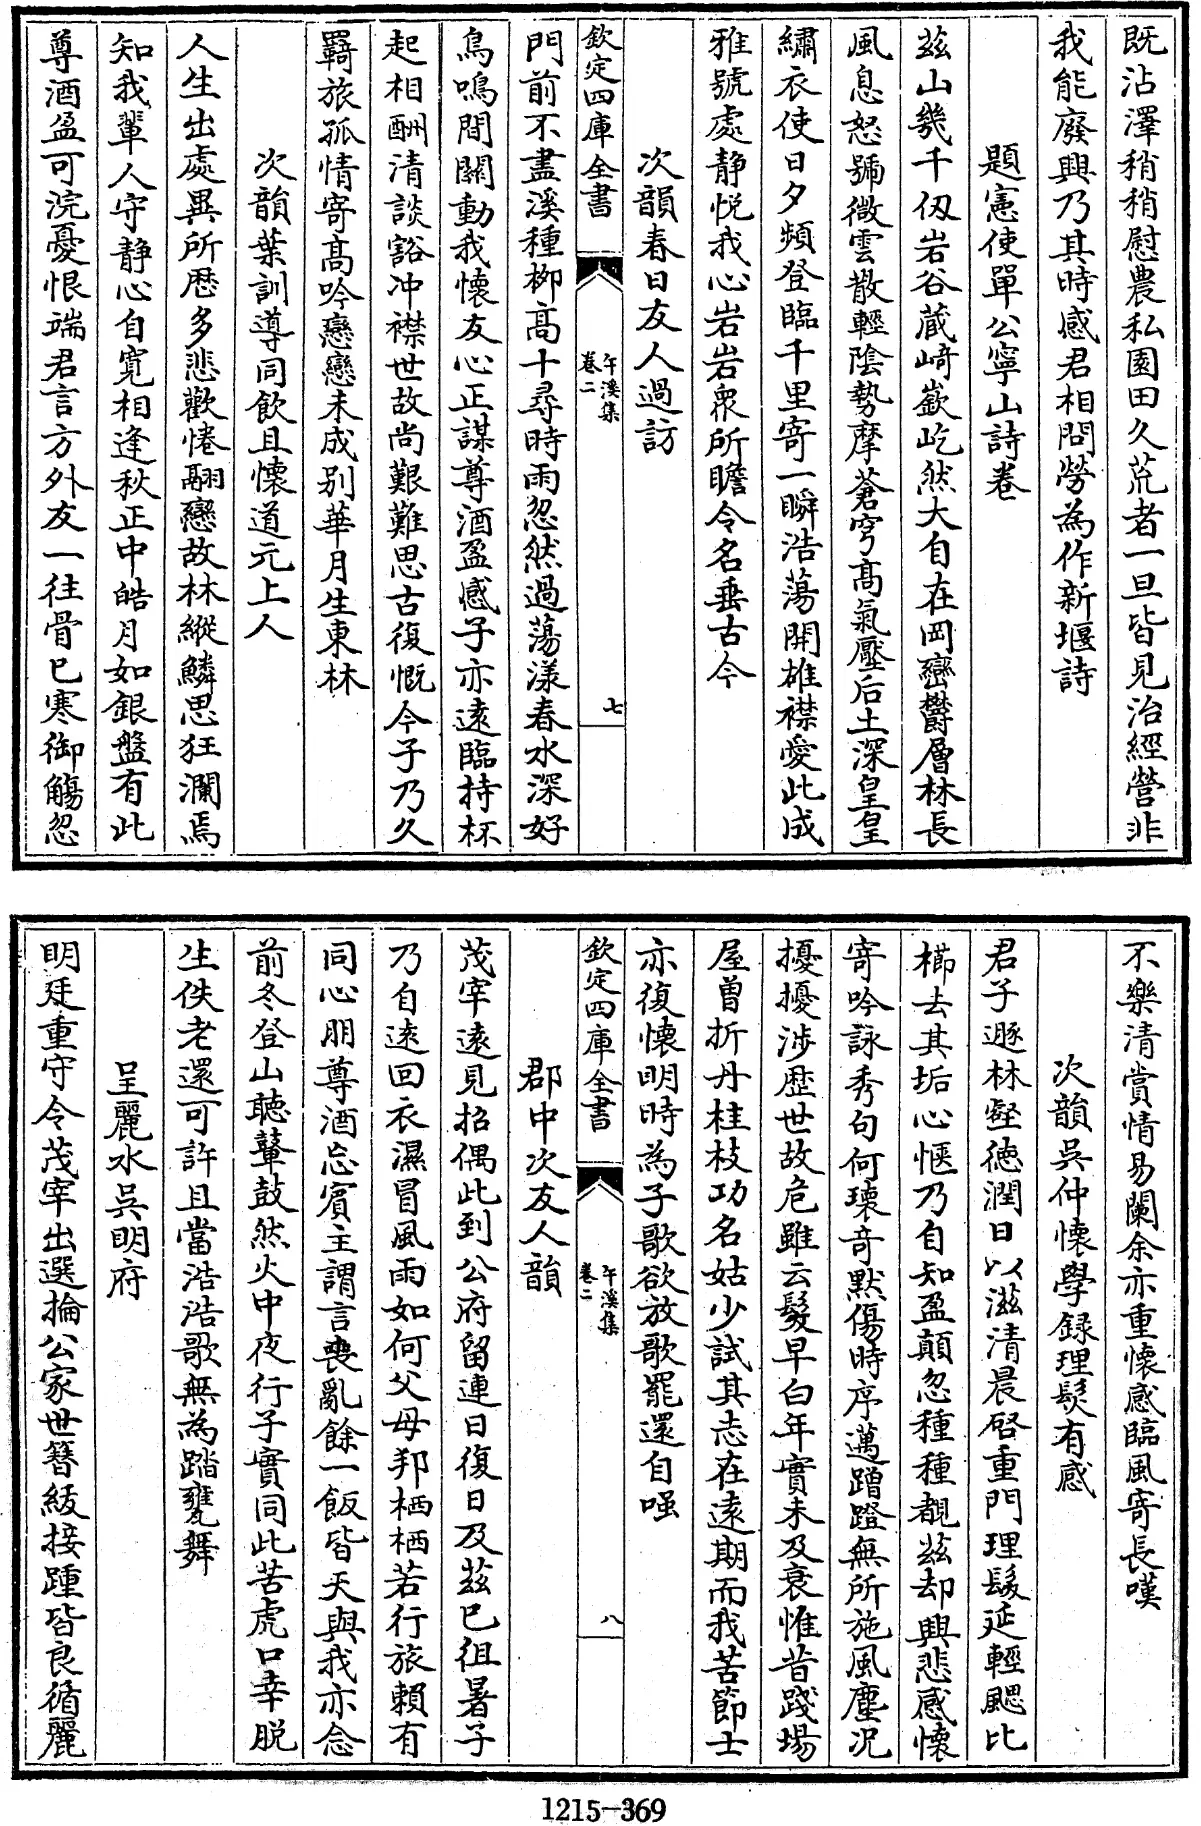 既沾澤稍稍慰農私園田久荒者一旦皆見治經營非
我能廢興乃其時感君相問勞為作新堰詩
題憲使單公寧山詩卷
兹山幾千仞岩谷蔵﨑嶔屹然大自在岡巒欝層林長
風息怒號微雲散輕陰勢摩蒼穹髙氣壓后土深皇皇
繡衣使日夕頻登臨千里寄一瞬浩蕩開雄襟愛此成
雅號處静悦我心岩岩衆所瞻令名垂古今
次韻春日友人過訪
欽定四庫全書
午溪集
卷二
七
門前不盡溪種栁髙十尋時雨忽然過蕩漾春水深好
鳥鳴間關動我懷友心正謀尊酒盈感子亦遠臨持杯
起相酬清談豁冲襟世故尚艱難思古復慨今子乃久
羇旅孤情寄髙吟戀戀未成别華月生東林
次韻葉訓導同飲且懷道元上人
人生出處異所歴多悲歡惓翮戀故林縱鱗思狂瀾焉
知我輩人守静心自寛相逢秋正中皓月如銀盤有此
尊酒盈可浣憂恨端君言方外友一往骨已寒御觴忽
不樂清賞情易闌余亦重懷感臨風寄長嘆
次韻吳仲懷學録理髮有感
君子遯林壑徳潤日以滋清晨啓重門理髮延輕颸比
櫛去其垢心惬乃自知盈顛忽種種覩兹却興悲感懷
寄吟詠秀句何瓌竒默傷時序邁蹭蹬無所施風塵况
擾擾涉歴世故危雖云髮早白年實未及衰惟昔踐場
屋曽折丹桂枝功名姑少試其志在遠期而我苦節士
亦復懷明時為子歌欲放歌罷還自嗤
欽定四庫全書
午溪集
卷二
八
郡中次友人韻
茂宰遠見招偶此到公府留連日復日及兹已徂暑子
乃自逺回衣濕冒風雨如何父母邦栖栖若行旅賴有
同心朋尊酒忘賓主謂言喪亂餘一飯皆天與我亦念
前冬登山聽鼙鼓然火中夜行子實同此苦虎口幸脱
生佚老還可許且當浩浩歌無為踏甕舞
呈麗水吳明府
明廷重守令茂宰出選掄公家世簪紱接踵皆良循麗
1215-369